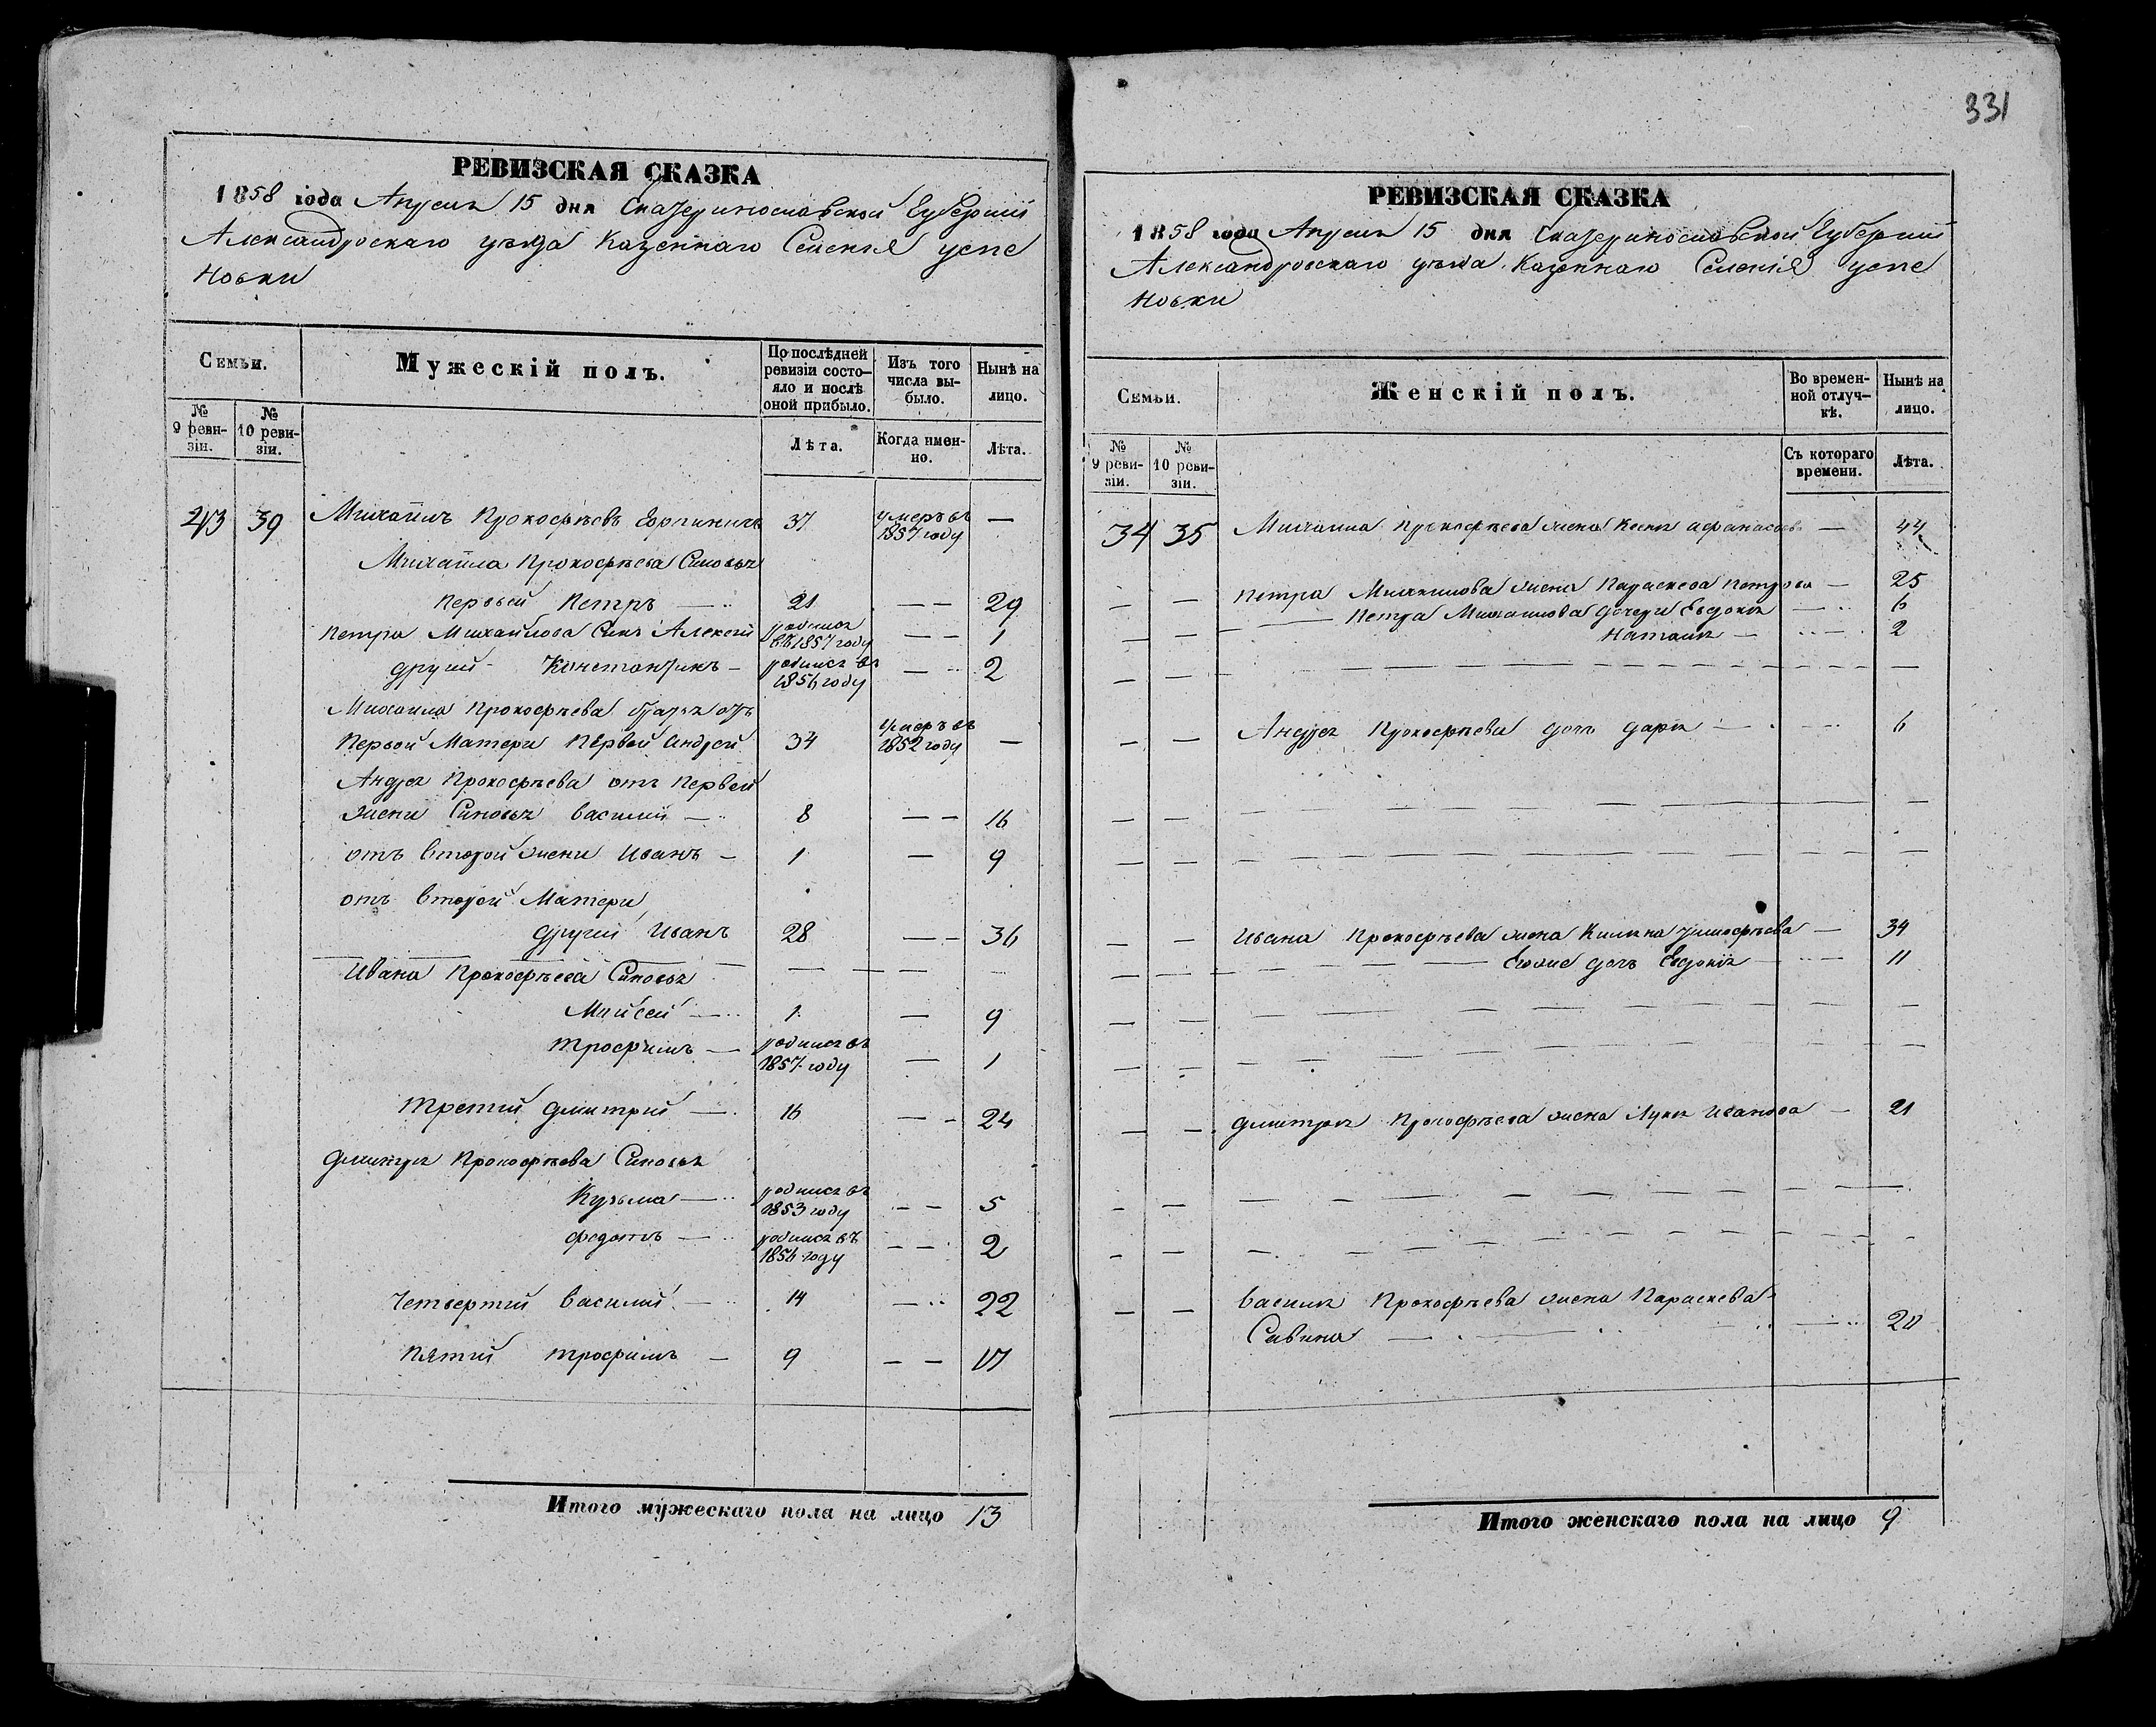 331
РЕВИЗСКАЯ СКАЗКА
1858 года Апреля 15 дня Екатеринославской Губернии
Александровскаго уезда Казеннаго Селения Успе
новки
Семьи.
Мужескій полъ.
По послѣдней ревизіи состо-
яло и послѣ оной прибыло.
Изъ того числа вы-
было.
Нынѣ на лицо.
№ 9 реви-
зіи.
№ 10 реви-
зіи.
Лѣта.
Когда имен-
но.
Лѣта.
39 Михайлъ Прокофьевъ 37 умеръ въ 1857 году —
Михайла Прокофьева Сыновья
первый Петръ — 21 — — 29
Петра Михайлова Сынъ Алексей родился въ 1857 году — — 1
другий Константинъ — родился въ 1856 году — 2
Михаила Прокофьева братья отъ
первой Матери первый Андрей 34 умеръ въ 1852 году —
Андрея Прокофьева отъ первой
жены Сыновья Василий — 8 — — 16
отъ второй жены Иванъ — 1 — 9
отъ второй Матери
другий Иванъ 28 — — 36
Ивана Прокофьева Сыновья — — — —
Мойсей — 1 — 9
Трофимъ — родился въ 1857 году — 1
третий Дмитрий — 16 — — 24
Дмитрия Прокофьева Сыновья
Кузьма — родился въ 1853 году — — 5
Федотъ — родился въ 1856 году — — 2
Четвертий Василий — 14 — 22
Пятий Трофимъ — 9 — — 17
Итого мужескаго пола на лицо 13
РЕВИЗСКАЯ СКАЗКА
1858 года Апреля 15 дня Екатеринославской Губернии
Александровскаго уезда Казеннаго Селения Успе
новки
Семьи.
Женскій полъ.
Во времен-
ной отлуч-
кѣ.
Нынѣ на лицо.
№ 9 реви-
зіи.
№ 10 реви-
зіи.
Съ котораго времени.
Лѣта.
34 35 Михаила Прокофьева жена Афанасьева — 44
Петра Михаилова жена Параскева Петрова — 25
Петра Михаилова дочери Евдокия — 6
Наталия — 2
Андрея Прокофьева дочь Дария — 6
Ивана Прокофьева жена Тимофеева — 34
Его же дочь Евдокия — 11
Дмитрия Прокофьева жена Иванова — 21
Василия Прокофьева жена Параскева
Савина — 20
Итого женскаго пола на лицо 9